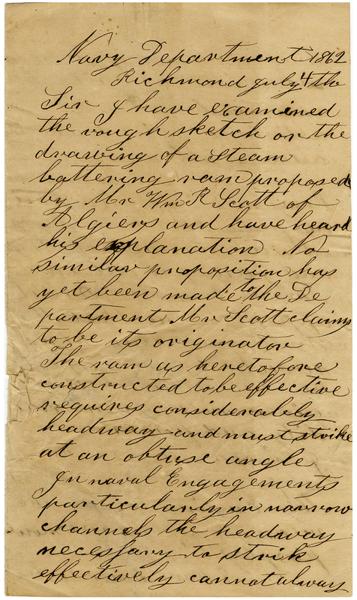 Navy Department 1862
Richmond July 4 the
Sir I have examined
the rough sketch or the
drawing of a Steam
battering ram proposed
by Mr Wm R Scott of
Algiers and have heard
his explanation No
similar proposition has
yet been made to the De
partment Mr Scott claims
to be its originator
The ram as heretofore
constructed to be effective
requires considerably
headway and must strike
at an obtuse angle
In naval Engagements
particularly in narrow
channels the headway
necessary to strik
effectively cannot alway